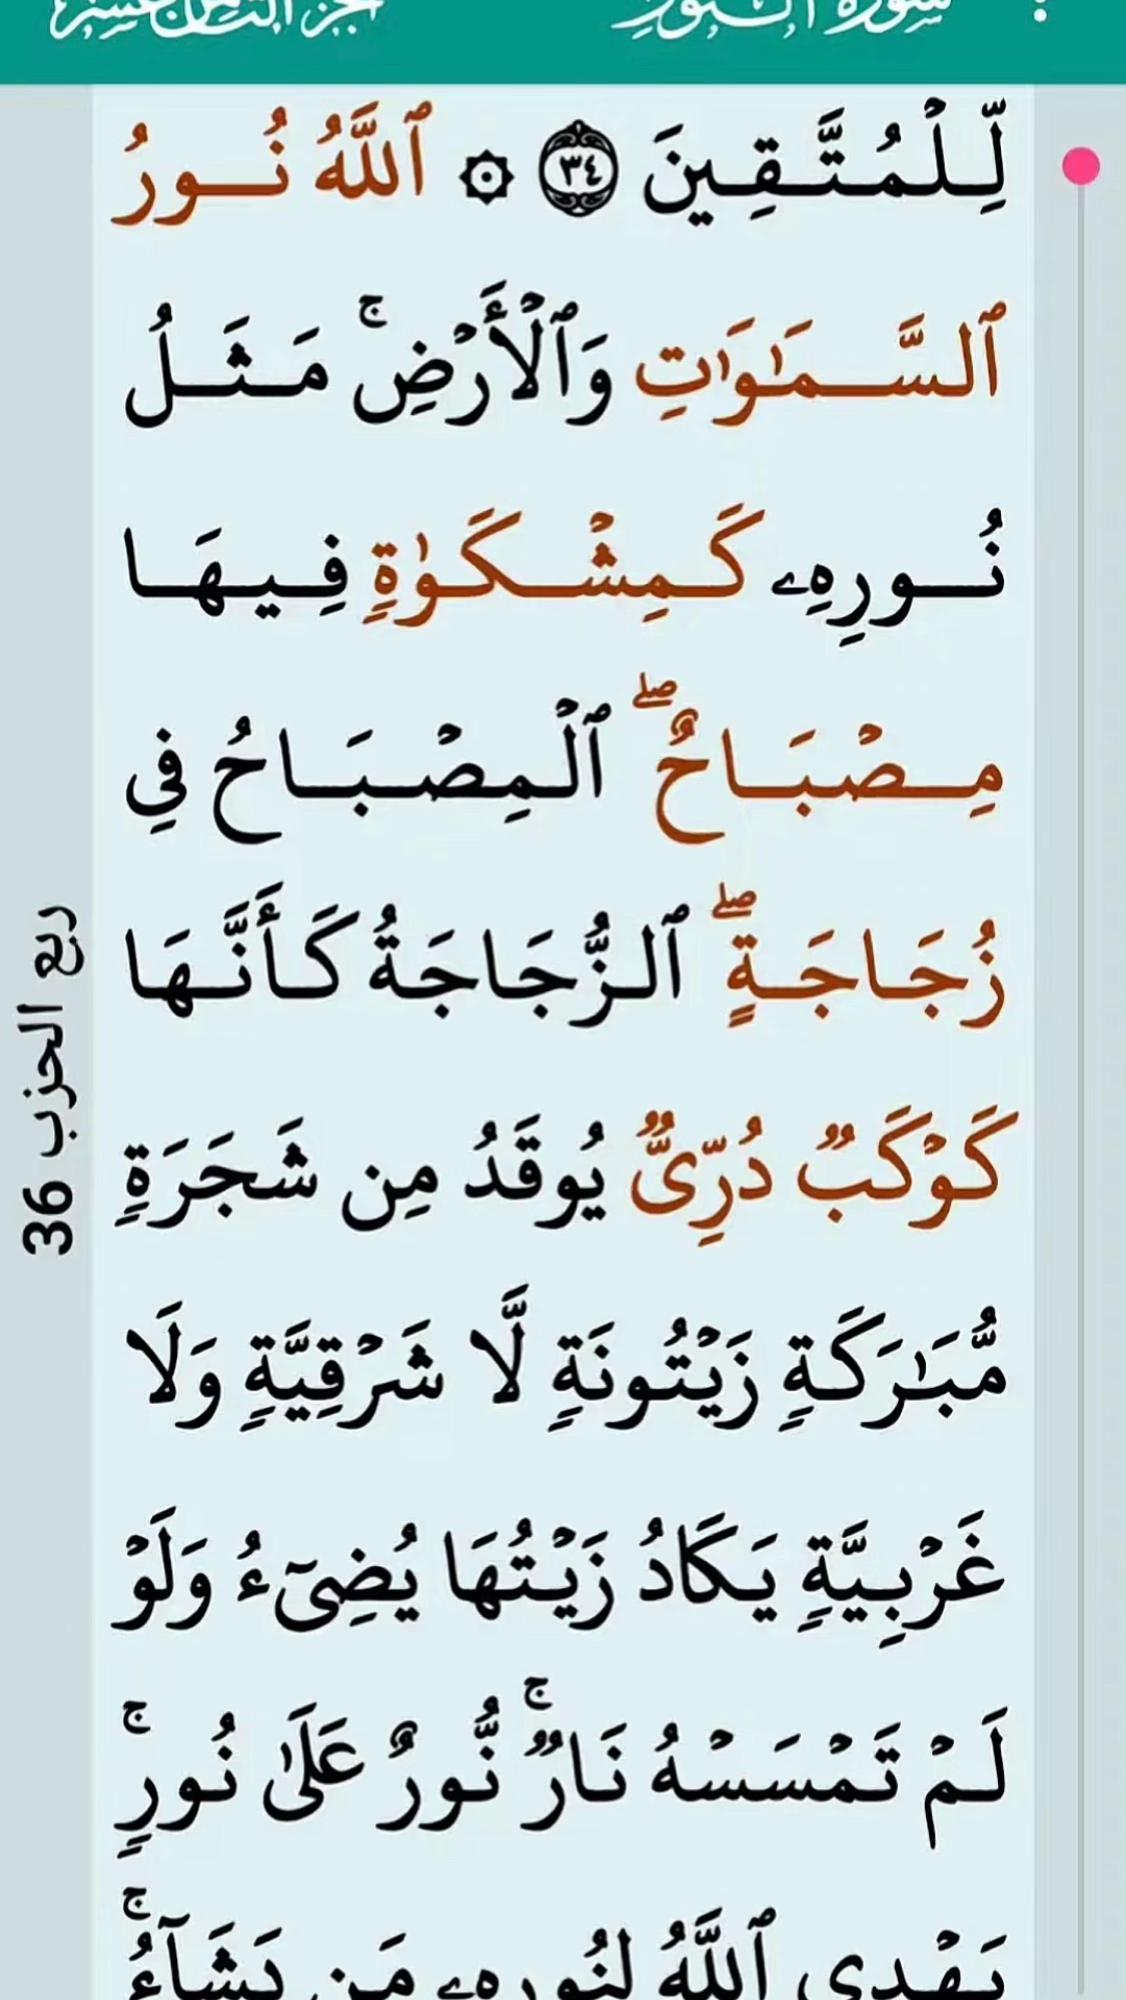 سورة النور
الجزء الثامن عشر
لِّلْمُتَّقِينَ ٣٤ ۞ ٱللَّهُ نُورُ
ٱلسَّمَٰوَٰتِ وَٱلْأَرْضِ ۚ مَثَلُ
نُورِهِۦ كَمِشْكَوٰةٍ فِيهَا
مِصْبَاحٌ ۖ ٱلْمِصْبَاحُ فِى
زُجَاجَةٍ ۖ ٱلزُّجَاجَةُ كَأَنَّهَا
كَوْكَبٌ دُرِّىٌّ يُوقَدُ مِن شَجَرَةٍ
مُّبَٰرَكَةٍ زَيْتُونَةٍ لَّا شَرْقِيَّةٍ وَلَا
غَرْبِيَّةٍ يَكَادُ زَيْتُهَا يُضِىٓءُ وَلَوْ
لَمْ تَمْسَسْهُ نَارٌ ۚ نُّورٌ عَلَىٰ نُورٍ ۚ
يَهْدِى ٱللَّهُ لِنُورِهِۦ مَن يَشَآءُ ۚ
ربع الحزب 36